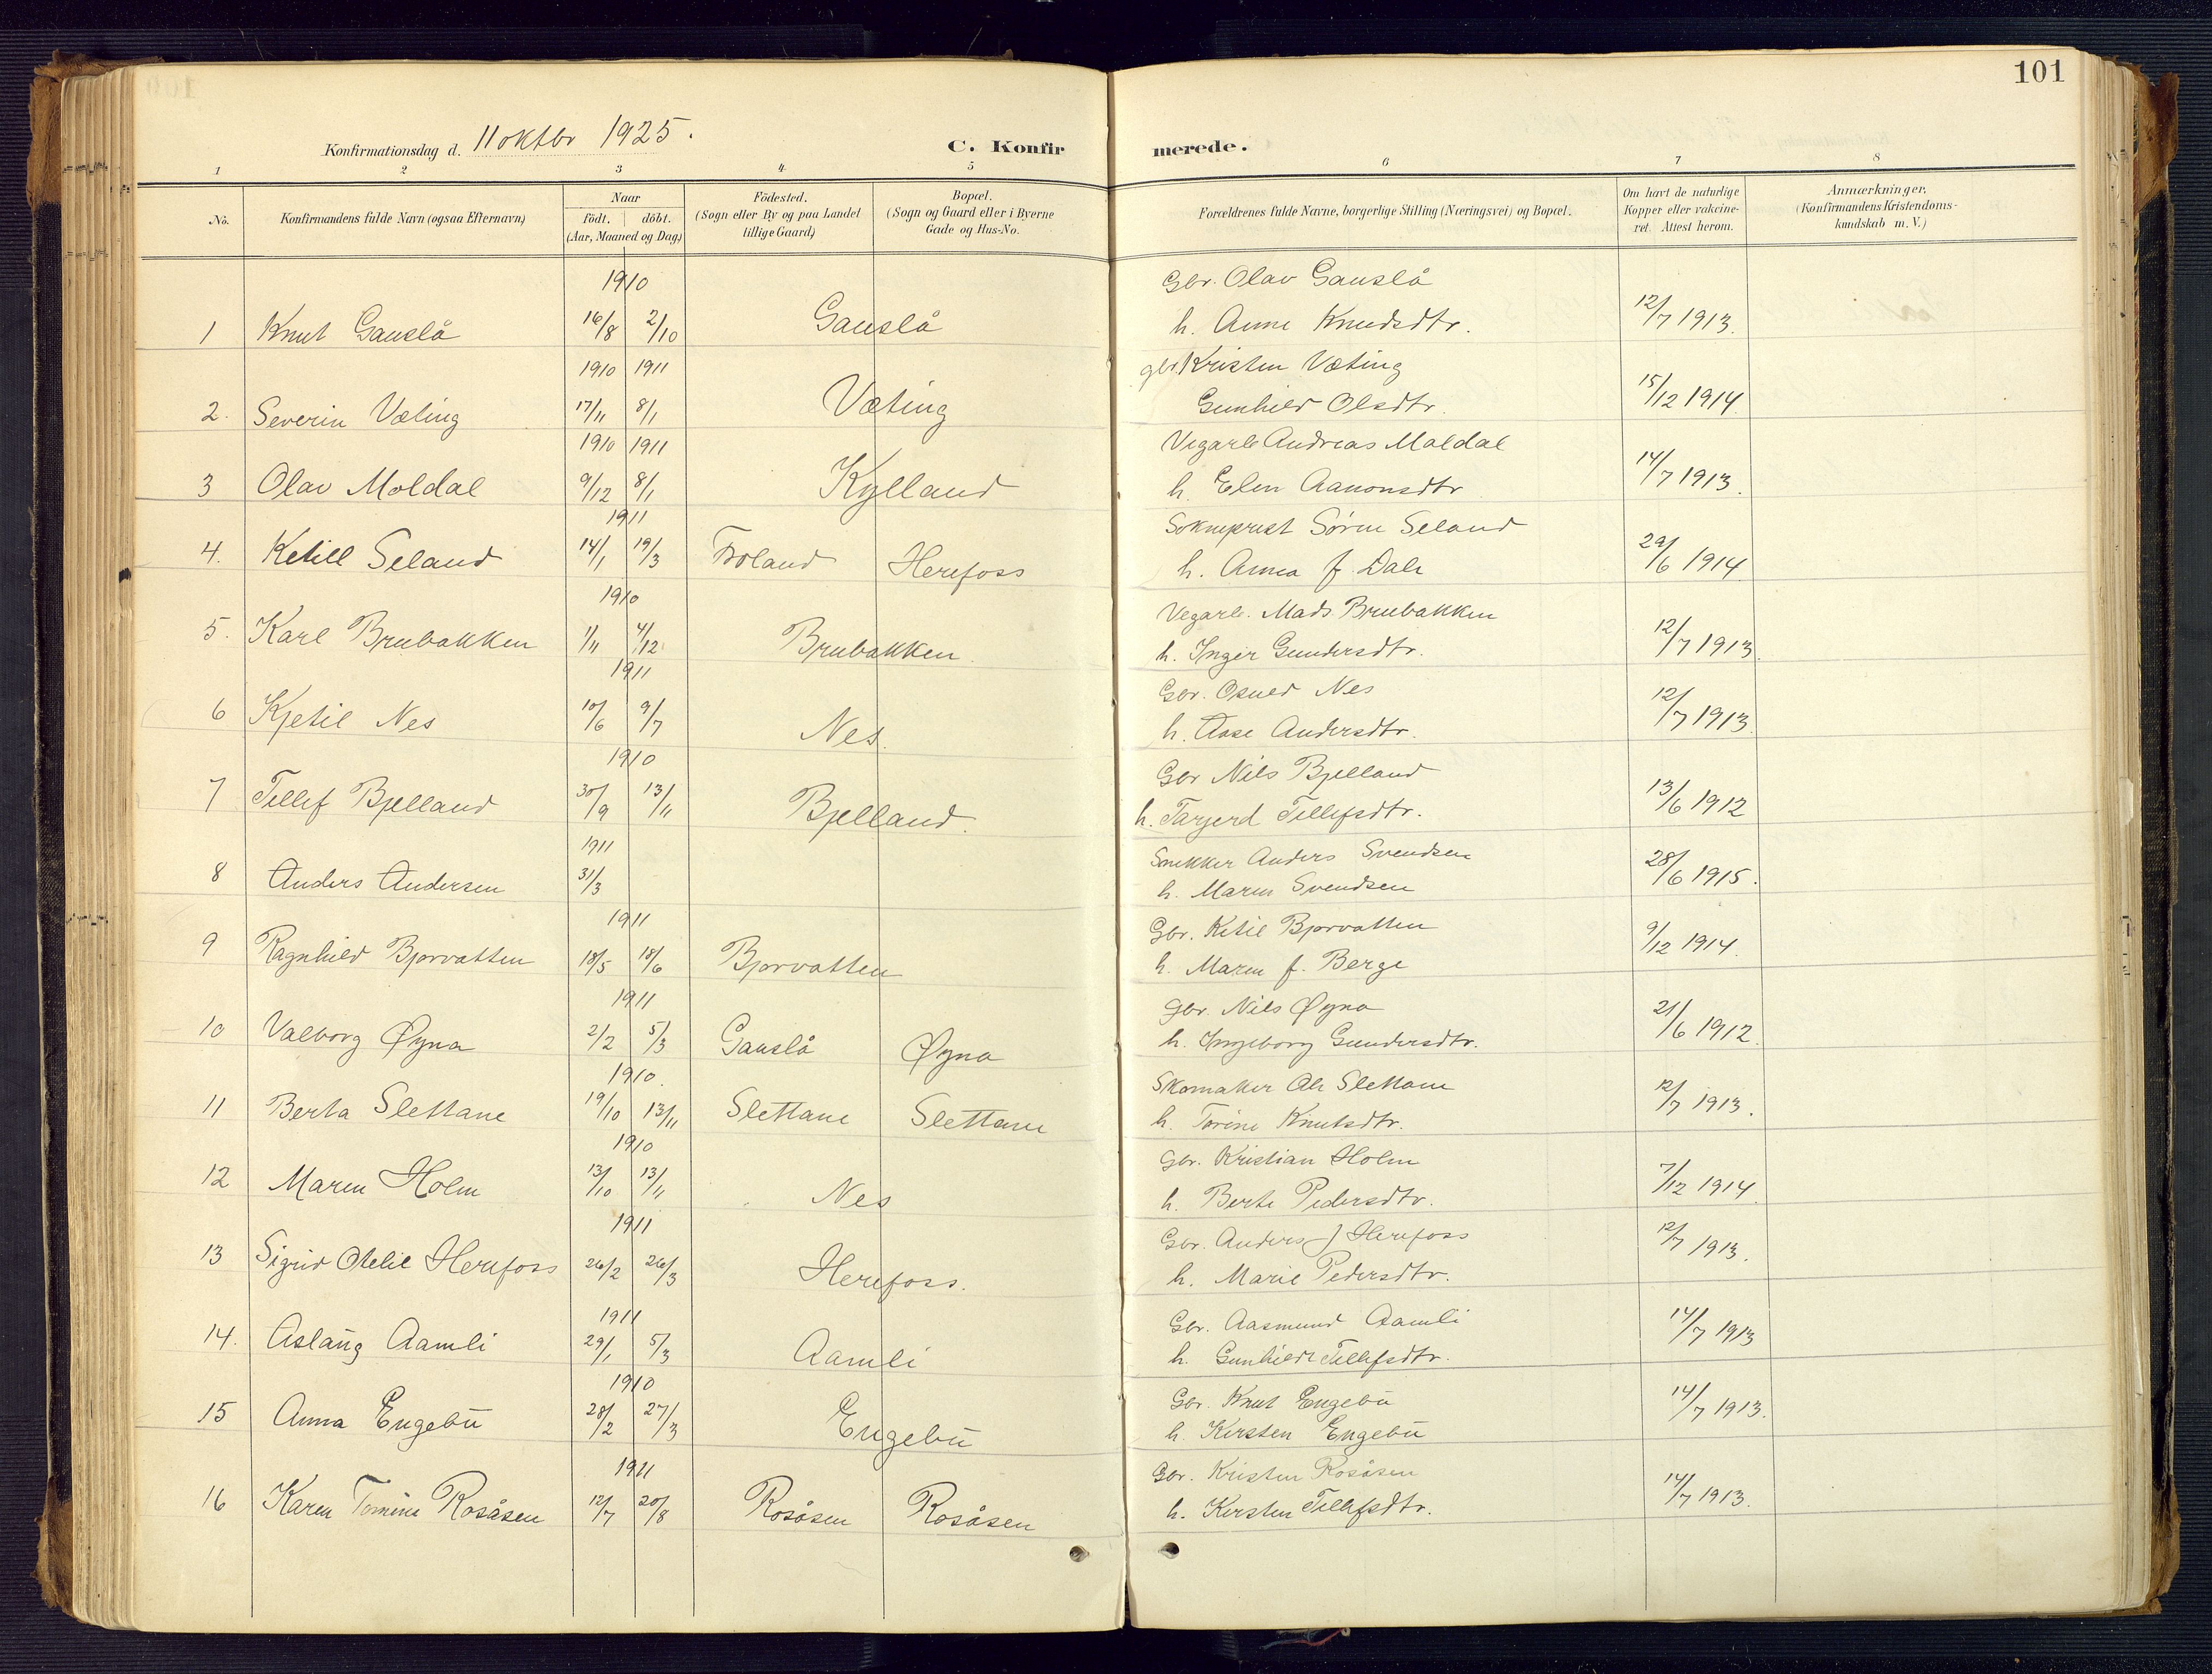 101
Konfirmationsdag d. 11 oktbr 1925.
C. Konfirmerede.
1 2 3 4 5 6 7 8
No.
Konfirmandens fulde Navn (ogsaa Efternavn)
Naar
födt. döbt.
(Aar, Maaned og Dag)
Födested.
(Sogn eller By og paa Landet
tillige Gaard)
Bopæl.
(Sogn og Gaard eller i Byerne
Gade og Hus-No.
Forældrenes fulde Navne, borgerlige Stilling (Næringsvei) og Bopæl.
Om havt de naturlige
Kopper eller vakcine-
ret. Attest herom.
Anmærkninger.
(Konfirmandens Kristendoms-
kundskab m. V.)
1910 Gbr. Olav Gauslå
1 Knut Gauslå 16/8 2/10 Gauslå h. Anne Knudsdtr. 12/7 1913.
1910 1911 gbr. Kristen Væting
2. Severin Væting 17/11 8/1 Væting Gunhild Olsdtr. 15/12 1914
1910 1911 Vegarb Andreas Moldal
3 Olav Moldal 9/12 8/1 Kylland h. Elen Aanonsdtr 14/7 1913.
1911 Sokneprest Sören Seland
4. Ketill Seland 14/1 19/3 Froland Herefoss h. Anna f. Dale 29/6 1914
1910 Vegarb. Mads Brubakken
5. Karl Brubakken 1/11 4/12 Brubakken h. Inger Gundersdtr. 12/7 1913
1911 Gbr. Osuld Nes
6 Kjetil Nes 10/6 9/7 Nes. h. Aase Andersdtr. 12/7 1913.
1910 Gbr Nils Bjelland
7 Tellef Bjelland 30/9 13/11 Bjelland. h. Tarjerd Tellefsdtr. 13/6 1912
1911 Snekker Anders Svendsen
8 Anders Andersen 31/3 h. Maren Svendsen 28/6 1915.
1911 Gbr. Ketil Bjorvatten
9 Ragnhild Bjorvatten 18/5 18/6 Bjorvatten h. Maren f. Berge 9/12 1914.
1911 Gbr. Nils Øyna
10 Valborg Øyna 2/2 5/3 Gauslå Øyna h. Ingeborg Gundersdtr. 21/6 1912
1910. Skomaker Ole Slettane
11 Berta Slettane 19/10 13/11 Slettane Slettane h. Torine Knutsdtr. 12/7 1913.
1910 Gbr. Kristian Holm
12 Maren Holm 13/10 13/11 Nes h. Berte Pedersdtr. 7/12 1914
1911 Gbr. Anders J Herefoss
13 Sigrid Otelie Herefoss 26/2 26/3 Herefoss. h. Marie Pedersdtr. 12/7 1913.
1911 Gbr. Aasmund Aamli
14. Aslaug Aamli 29/1 5/3 Aamli h. Gunhild Tellefsdtr. 14/7 1913
1910 Gbr. Knut Engebu
15 Anna Engebu 28/2 27/3 Engebu h. Kirsten Engebu 14/7 1913.
1911 Gbr. Kristen Rosåsen
16 Karen Tomine Rosåsen 12/7 20/8 Rosåsen Rosåsen h. Kirsten Tellefsdtr. 14/7 1913.